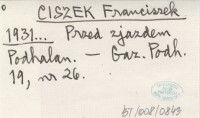 CISZEK Franciszek
1931... Przed zjazdem
Podhalan. — Gaz. Podh.
19, nr 26.
57/008/0843